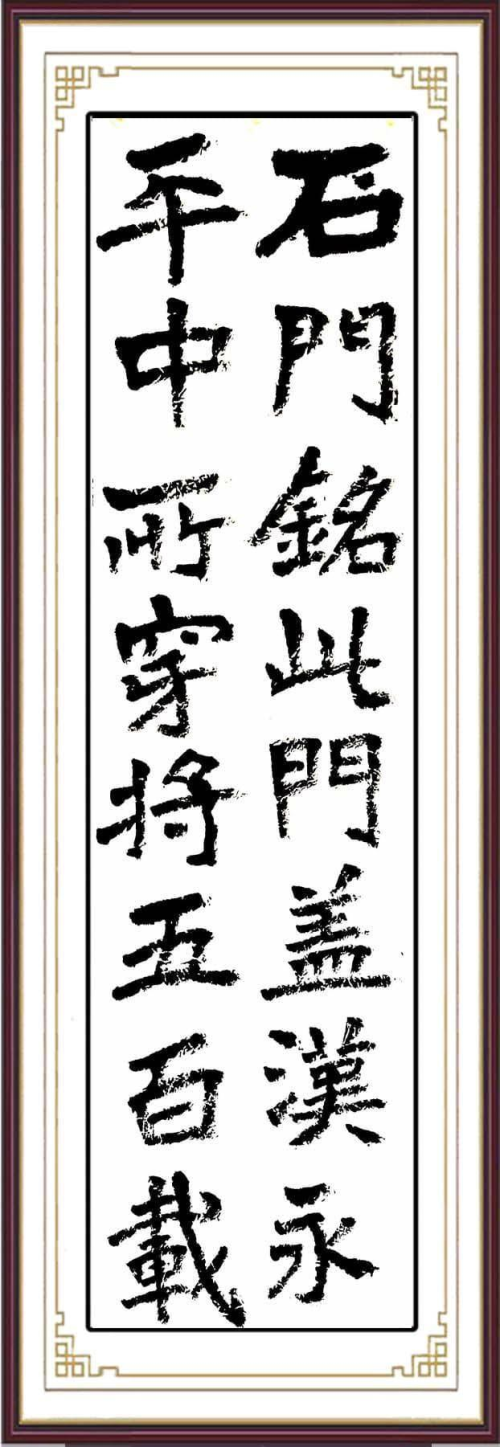 石門銘此門盖漢永
平中所穿將五百載